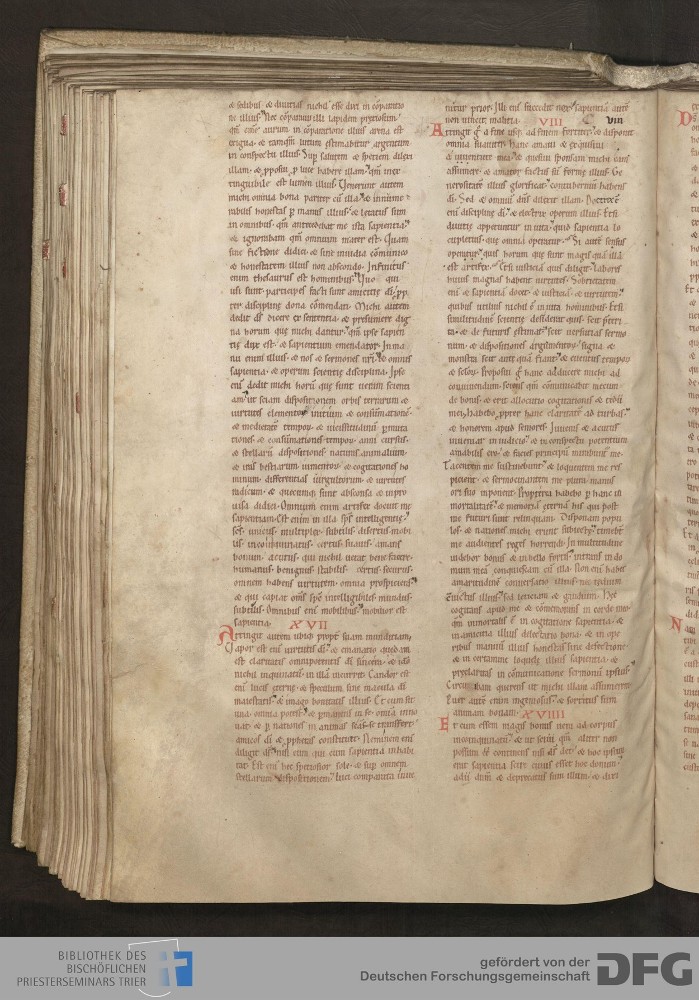 & sedibus & divitias nichil esse dixi in cōparatio
ne illius Nec cōparavi illi lapidem preciosum
qm̄ omne aurum in cōparatione illius arena est
exigua & tamqm̄ lutum estimabitur argentum
in conspectu illius Sup salutem & speciem dilexi
illam & pposui p luce habere illam qm̄ inex
tinguibile est lumen illius Venerunt autem
michi omnia bona pariter cū illa & innume
rabilis honestas p manus illius & letatus sum
in omnibus qm̄ antecedebat me ista sapientia
& ignorabam qm̄ omnium mater est Quam
sine fictione didici & sine invidia cōmunico
& honestatem illius non abscondo Infinitus
enim thesaurus est hominibus Quo qui
usi sunt participes facti sunt amicitię dī pp
ter discipline dona cōmendati Michi autem
dedit ds̄ dicere ex sententia & presumere dig
na horum quę michi dantur qm̄ ipse sapien
tię dux est & sapientium emendator In ma
nu enim illius & nos & sermones nr̄i & omnis
sapientia & operum scientię disciplina Ipse
eni dedit michi horū quę sunt veram scienti
am ut sciam dispositionem orbis terrarum &
virtutes elementorum initium & consūmationē
& medietatē tempor̄ & vicissitudinū pmuta
tiones & consūmationes tempor̄ anni cursus
& stellarū dispositiones naturas animalium
& iras bestiarum vim ventor̄ & cogitationes ho
minum differentias virgultorum & virtutes
radicum & quecumq sunt absconsa & impro
visa didici Omnium enim artifex docuit me
sapientiam Est enim in illa sps̄ intelligentię
scs̄ unicus multiplex subtilis disertus mobi
lis incoinquinatus certus suavis amans
bonum acutus qui nichil vetat benefacere
humanus benignus stabilis certus securus
omnem habens virtutem omnia prospiciens
& qui capiat oms̄ sps̄ intelligibilis mundus
subtilis Omnibus eni mobilibus mobilior est
sapientia XVII
Attingit autem ubiq ppter suam mundiciam
Vapor est eni virtutis dī & emanatio quedam
est claritatis omnipotentis dī sincera & ideo
nichil inquinatū in illā incurrit Candor est
eni lucis ęternę & speculum sine macula dī
maiestatis & imago bonitatis illius Et cum sit
una omnia potest & pmanens in se omnia inno
vat & p nationes in animas scās se transfert
amicos dī & pphetas constituit Neminem eni
diligit ds̄ nisi eum qui cum sapientia inhabi
tat Est eni hec speciosior sole & sup omnem
stellarum dispositionem luci comparata inve
nitur prior Illi eni succedit nox sapientiā autē
non vincit malicia VIII VIII
Attingit ḡ a fine usq ad finem fortiter & disponit
omnia suaviter Hanc amavi & exquisivi
a iuventute mea & quesivi sponsam michi eam
assumere & amator factus sū formę illius Ge
nerositatem illius glorificat contubernium habens
dī Sed & omniū dns̄ dilexit illam Doctrix ē
eni disciplinę dī & electrix operum illius Et si
divitię appetuntur in vita quid sapientia lo
cupletius quę omnia operatur Si autē sensus
operatur quis horum quę sunt magis quā illa
est artifex Et si iusticiā quis diligit labores
huius magnas habent virtutes Sobrietatem
eni & sapientiā docet & iusticiā & virtutem
quibus utilius nichil ē in vita hominibus Et si
similitudinē scientię desiderat quis scit pterr
ta & de futuris estimat scit versutias sermo
num & dispositiones argumentor̄ Signa &
monstra scit ante quā fiant & eventus tempor̄
& sclor̄ Proposui ḡ hanc adducere michi ad
convivendum sciens qm̄ communicabit mecum
de bonis & erit allocutio cogitationis & tedii
mei Habebo ppter hanc claritatē ad turbas
& honorem apud seniores Iuvenis & acutus
inveniar in iudicio & in conspectu potentium
amirabilis ero & facies principū mirabunt me
Tacentem me sustinebunt & loquentem me res
picient & sermocinantem me plura manus
ori suo imponent Pręterea habebo p hanc in
mortalitatē & memoriā eternā his qui post
me futuri sunt relinquam Disponam popu
los & nationes michi erunt subiectę timebunt
me audientes reges horrendi In multitudine
videbor bonus & in bello fortis intrans in do
mum meā conquiescam cū illa Non eni habet
amaritudinē conversatio illius nec tedium
Convictus illius sed leticiam & gaudium Hęc
cogitans apud me & cōmemorans in corde meo
qm̄ inmortalis ē in cogitatione sapientia &
in amicitia illius delectatio bona & in ope
ribus manuū illius honestas sine defectione
& in certamine loquelę illius sapientia &
preclaritas in communicatione sermonū ipsius
Circuibam querens ut michi illam assumerem
Puer autē eram ingeniosus & sortitus sum
animam bonam XVIIII
Et cum essem magis bonus veni ad corpus
incoinquinatū & ut scivi qm̄ aliter non
possum eē continens nisi ds̄ det & hoc ipsum
erat sapientia scire cuius esset hoc donum
adii dnm̄ & deprecatus sum illum & dixi
BIBLIOTHEK DES
BISCHÖFLICHEN
PRIESTERSEMINARS TRIER
gefördert von der
Deutschen Forschungsgemeinschaft
DFG